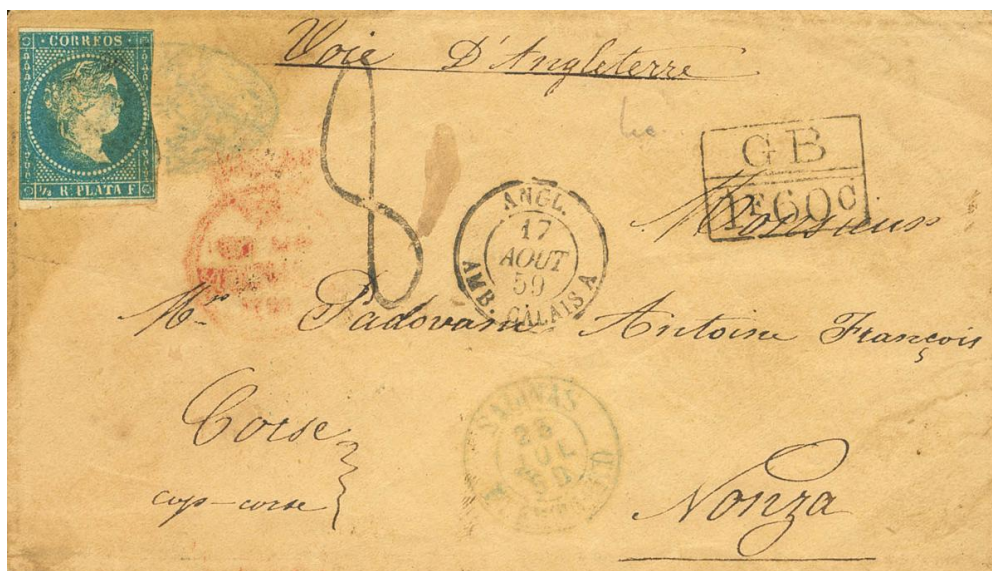 CORREOS
½ R. PLATA F.
Voie D'Angleterre
8
GB
1F60C
ANGL.
17
AOUT
59
AMB. CALAIS A
Monsieur
Mr Padovani Antoine François
Corse
cap-corse
SALINAS
JUL
Nonza